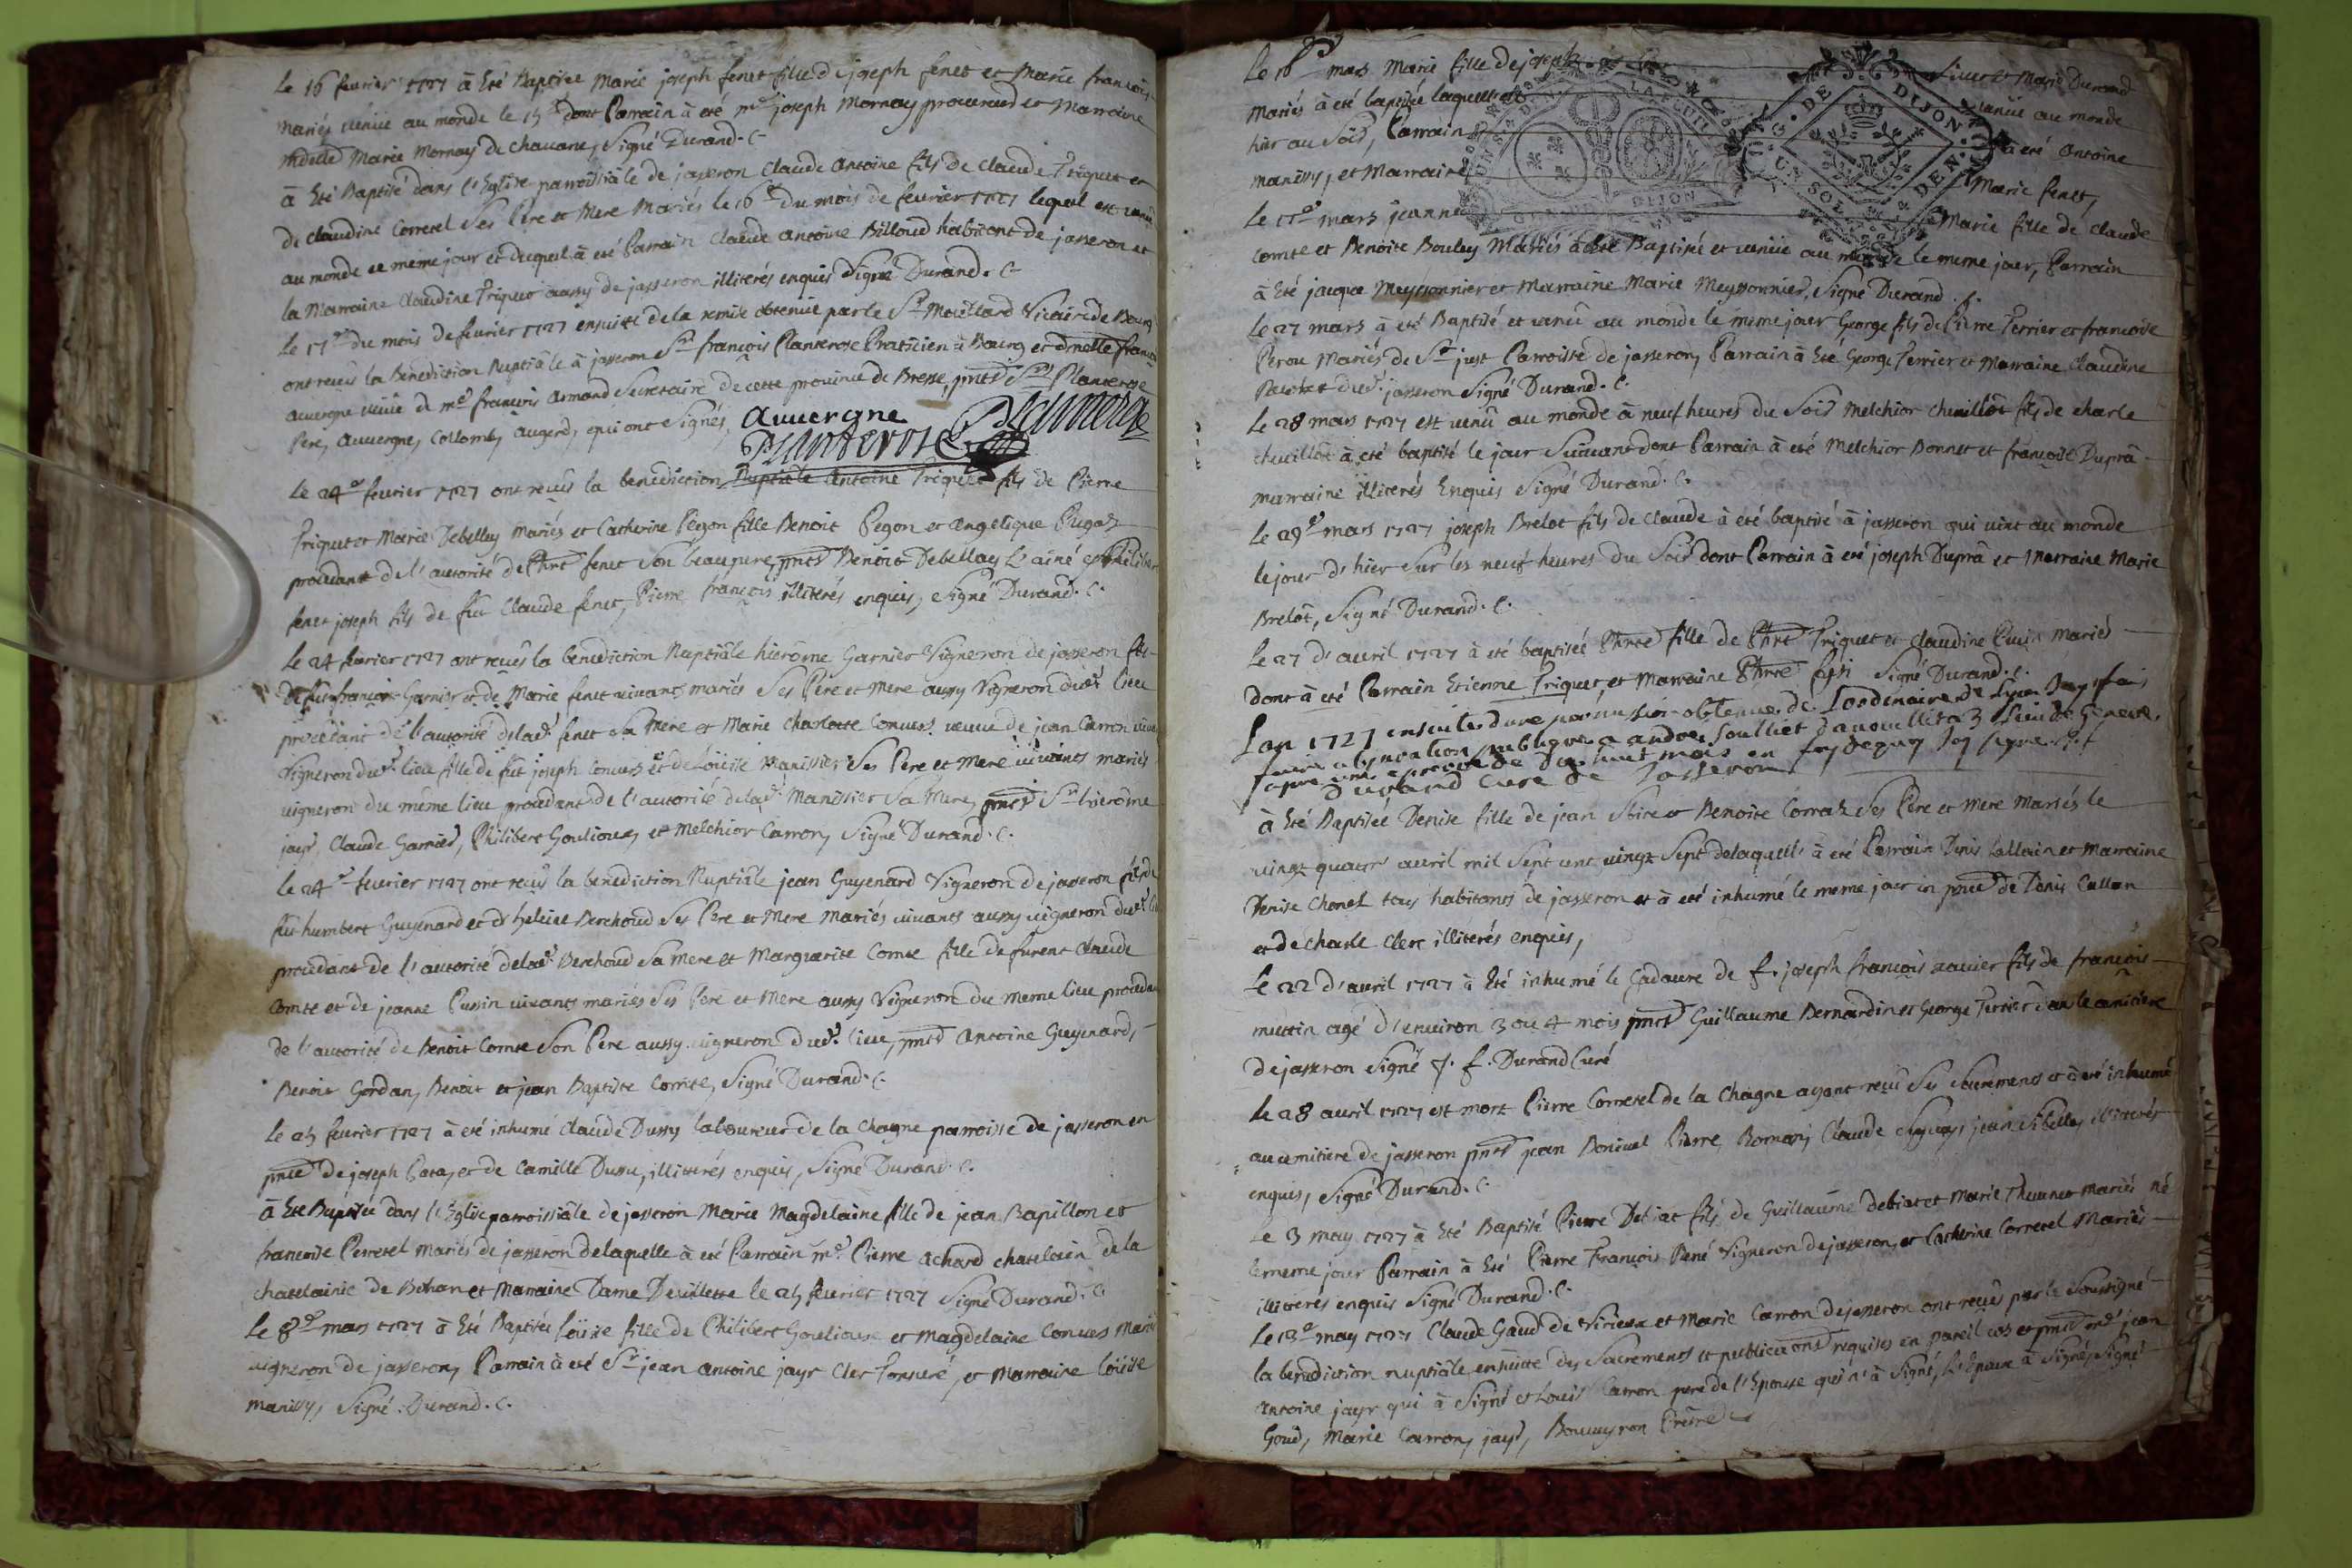 Le 16 fevrier 1727 à Eté Baptisée Marie joseph fenet fille de joseph fenet et Marie francois
mariés venüe au monde le 15e dont Parrain à eté me joseph Mornay procureur et Marraine
mdelle Marie Mornay de chavane, Signé Durand. C.
à Eté Baptisé dans l'Eglise parroissiale de jasseron Claude Antoine fils de Claude Triquet et
de Claudine Corretel Ses Père et Mere Mariés le 16e du mois de fevrier 1727 lequel est venu
au monde le meme jour et duquel à eté Parrain Claude Antoine Billoud habitant de jasseron et
la Marraine Claudine Triquet aussy de jasseron illiterés enquis Signé Durand. C.
Le 17e du mois de fevrier 1727 ensuitte de la remise obtenüe par le Sr Vicaire de Bourg
ont reçus la Benediction Nuptiale à jasseron Sr françois Planterose Praticien à Bourg et dmelle
auvergne veüve de me francois Armand Secretaire de cette province de Bresse, pnts Srs Planterose
Pere, Auvergne, Collomb, augerd, qui ont Signés. Auvergne
Planterose
Le 24e fevrier 1727 ont reçus la benediction Nuptiale Antoine Triquet fils de Pierre
Triquet et Marie Debelley mariés et Catherine Pegon fille Benoit Pegon et Angelique
procedant de l'autorité de Phrt fenet Son beaupere, pnts Benoit Debellay L'ainé et Philibert
fenet joseph fils de fut Claude fenet, Pierre françois illiterés enquis, Signé Durand. C.
Le 24 fevrier 1727 ont reçus la benediction Nuptiale hierôme Garnier Vigneron de jasseron fils
de fut françois Garnier et de Marie fenet vivants mariés Ses Pere et Mere aussy Vigneron dud. Lieu
procedant de l'autorité de lad. fenet Sa Mere et Marie Charlotte Convers veuve de jean Carron vivant
Vigneron dud. lieu fille de fut joseph Convers et de Loüise Manissier Ses Pere et Mere vivants mariés
vigneron du même lieu procedant de l'autorité de lad. Manissier Sa Mere, pnts Sr hierôme
jayr, Claude Garnier, Philibert Goulioux, et Melchior Carron, Signé Durand. C.
Le 24e fevrier 1727 ont reçus la benediction Nuptiale jean Guyenard Vigneron de jasseron fils de
fut humbert Guyenard et d'heleine Berchoud Ses Pere et Mere Mariés vivants aussy vigneron dud.
procedant de l'autorité de lad. Berchoud Sa Mere et Marguerite Comte fille de furent Claude
Comte et de jeanne Pussin vivants mariés Ses Pere et Mere aussy Vigneron du meme lieu procedant
de l'autorité de Benoit Comte Son Pere aussy vigneron dud. lieu, pnts Antoine Guyenard,
Benoit Gordan, Benoit et jean Baptiste Comte, Signé Durand. C.
Le 25 fevrier 1727 à eté inhumé Claude Dussy laboureur de la Chagne parroisse de jasseron en
pnce de joseph et de Camille, illiterés enquis, Signé Durand. C.
à Eté Baptisée dans l'Eglise parroissiale de jasseron Marie Magdelaine fille de jean Bapillon et
francoise Perretel mariés de jasseron de laquelle à eté Parrain me Pierre Achard chatelain de la
chatelainie de Bohan et Marraine Dame Devillette le 25 fevrier 1727 Signé Durand. C.
Le 8e mars 1727 à Eté Baptisée Loüise fille de Philibert Goulioux et Magdelaine Convers Mariés
vigneron de jasseron, Parrain à eté Sr jean Antoine jayr Clerc Tonsuré, et Marraine Loüise
Manissy, Signé. Durand. C.
Le 16e mars Marie fille de joseph Marie Durand
Mariés à eté baptisée laquelle est venüe au monde
hier au Soir, Parrain à eté Antoine
Manissy, et Marraine Marie fenet,
Le 17e mars jeanne Marie fille de Claude
Comte et Benoite Bouley Mariés à Eté Baptisée et venüe au monde le meme jour, Parrain
à Eté jacque Meyssonnier et Marraine Marie Meyssonnier, Signé Durand. C.
Le 27 mars à eté Baptisé et venu au monde le meme jour George fils de Pierre Terrier et francoise
Perou Mariés de St just Parroisse de jasseron, Parrain à Eté George Terrier et Marraine Claudine
dud. jasseron Signé Durand. C.
Le 28 mars 1727 est venû au monde à neuf heures du Soir Melchior Chevillot fils de Charle
Chevillot à eté baptisé le jour Suivant dont Parrain à eté Melchior Bonnet et françoise Dupra
marraine illiterés Enquis Signé Durand. C.
Le 29e mars 1727 joseph Brelot fils de Claude à eté baptisé à jasseron qui vint au monde
le jour d'hier Sur les neuf heures du Soir dont Parrain à eté joseph Dupra et Marraine Marie
Brelot, Signé Durand. C.
Le 27 d'avril 1727 à eté baptisée Phrte fille de Phrt Triquet et Claudine Mariés
dont à eté Parrain Etienne Triquet, et Marraine Phrte Signé Durand. C.
Lan 1727 ensuite dune permission obtenue de Lordinaire de Lyon Jay fai
faire abjuration publique a andre soulliet 3 lieu de Geneve,
apres une epreuve de dix huit mois en foy dequoy jay signe. J. f
Durand Cure de Jasseron
à Eté Baptisée Denise fille de jean et Benoite Corras Ses Pere et Mere Mariés le
vingt quatre avril mil Sept cent vingt Sept de laquelle à eté Parrain Denis Callan et Marraine
Denise Chanel tous habitants de jasseron et à eté inhumé le meme jour in pnce de Denis Callan
et de Charle Clerc illiterés enquis,
Le 22 d'avril 1727 à Eté inhumé le Cadavre de f. joseph francois xavier fils de françois
agé d'environ 3 ou 4 mois pnts Guillaume Bernardin et George Terrier dans le cimitiere
de jasseron signé J. f. Durand Curé
Le 28 avril 1727 est mort Pierre Corretel de la Chagne ayant reçu Ses Sacrements et à eté inhumé
au cimitiere de jasseron pnts jean Pierre Claude jean Sibelles illiterés
enquis, Signé Durand. C.
Le 3 may 1727 à Eté Baptisé Pierre Debiat fils de Guillaume debiat et Marie Thevenet Mariés né
le meme jour Parrain à Eté Pierre François René Vigneron de jasseron, et Catherine Corretel Mariés
illiterés enquis Signé Durand. C.
Le 13e may 1727 Claude Gaud de Virieux et Marie Carron de jasseron ont reçus par le Soussigné
la benediction nuptiale ensuitte des Sacrements et publications requises en pareil cas et pnts me jean
Antoine jayr qui à Signé et Louis Carron pere de l'Epouse qui n'à Signé, L'Epoux à Signé, Signé
Goud, Marie Carron, jayr, Bouvyron Prêtre
LA FEUIL
GENERALITE DIJON
G. DE DIJON
UN SOL
DEN.